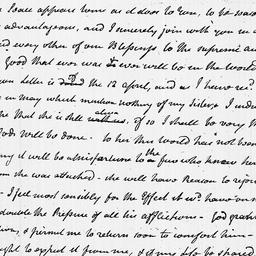 Peace appears were as a door to Eon, to be
advantageous, and I sincerely join with you in
every other of our Blessings to the supreme
Good that ever was or ever will be in the World
your letter is dated the 12 april, and as I have rec
in may which mention nothing of my Sister I
that she is still alive, if so I shall be very
Gods will be done. to her the world has not been
my it will be a misfortune to the few who knew her
whom she was attached. she will have Reason to
I feel most sensibly for the Effect it wd have on
double the Pressure of all his afflictions. God
& permit me to return soon to comfort him
ought to expect it from me, & if my life be spared